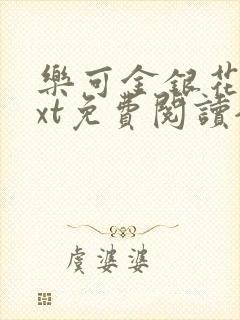 樂可金銀花
xt免費閱讀
虞婆婆